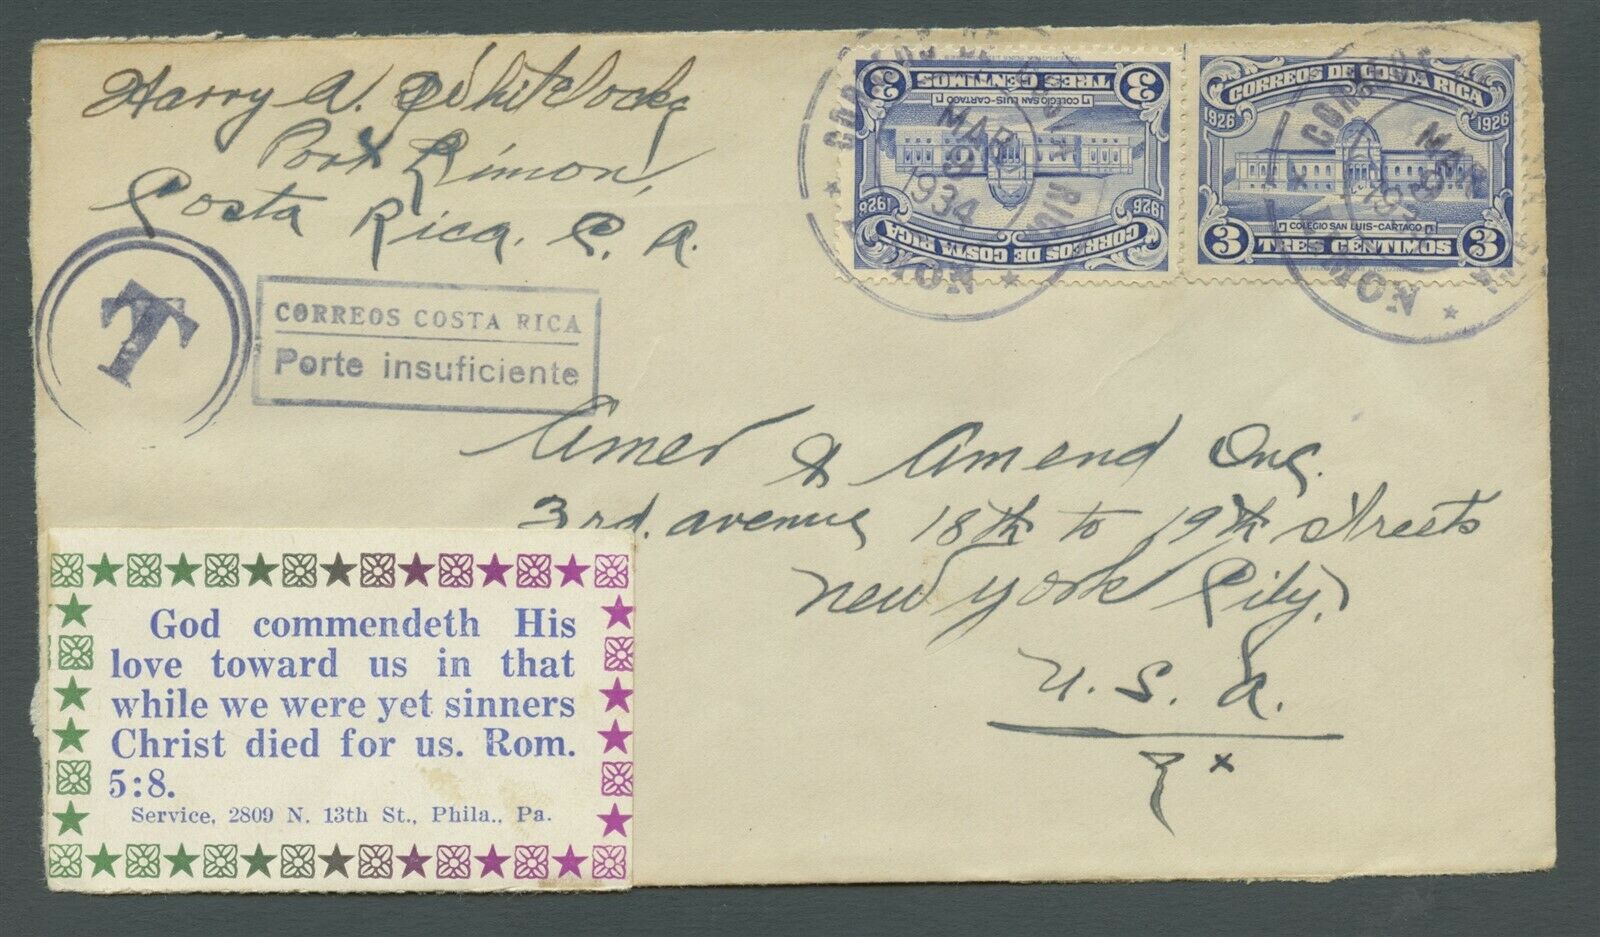 Harry A. Whitelocke
Port Limon,
Costa Rica. C. A.
T
CORREOS COSTA RICA
Porte insuficiente
CORREOS DE COSTA RICA
1926 1926
COLEGIO SAN LUIS-CARTAGO
3 TRES CENTIMOS 3
MAR
9
1934
LIMON
CORREOS DE COSTA RICA
1926 1926
COLEGIO SAN LUIS-CARTAGO
3 TRES CÉNTIMOS 3
MAR
LIMON
Amer & Amend Inc.
3rd. avenue 18th to 19th streets
New York City.
U. S. A.
x
God commendeth His
love toward us in that
while we were yet sinners
Christ died for us. Rom.
5:8.
Service, 2809 N. 13th St., Phila., Pa.